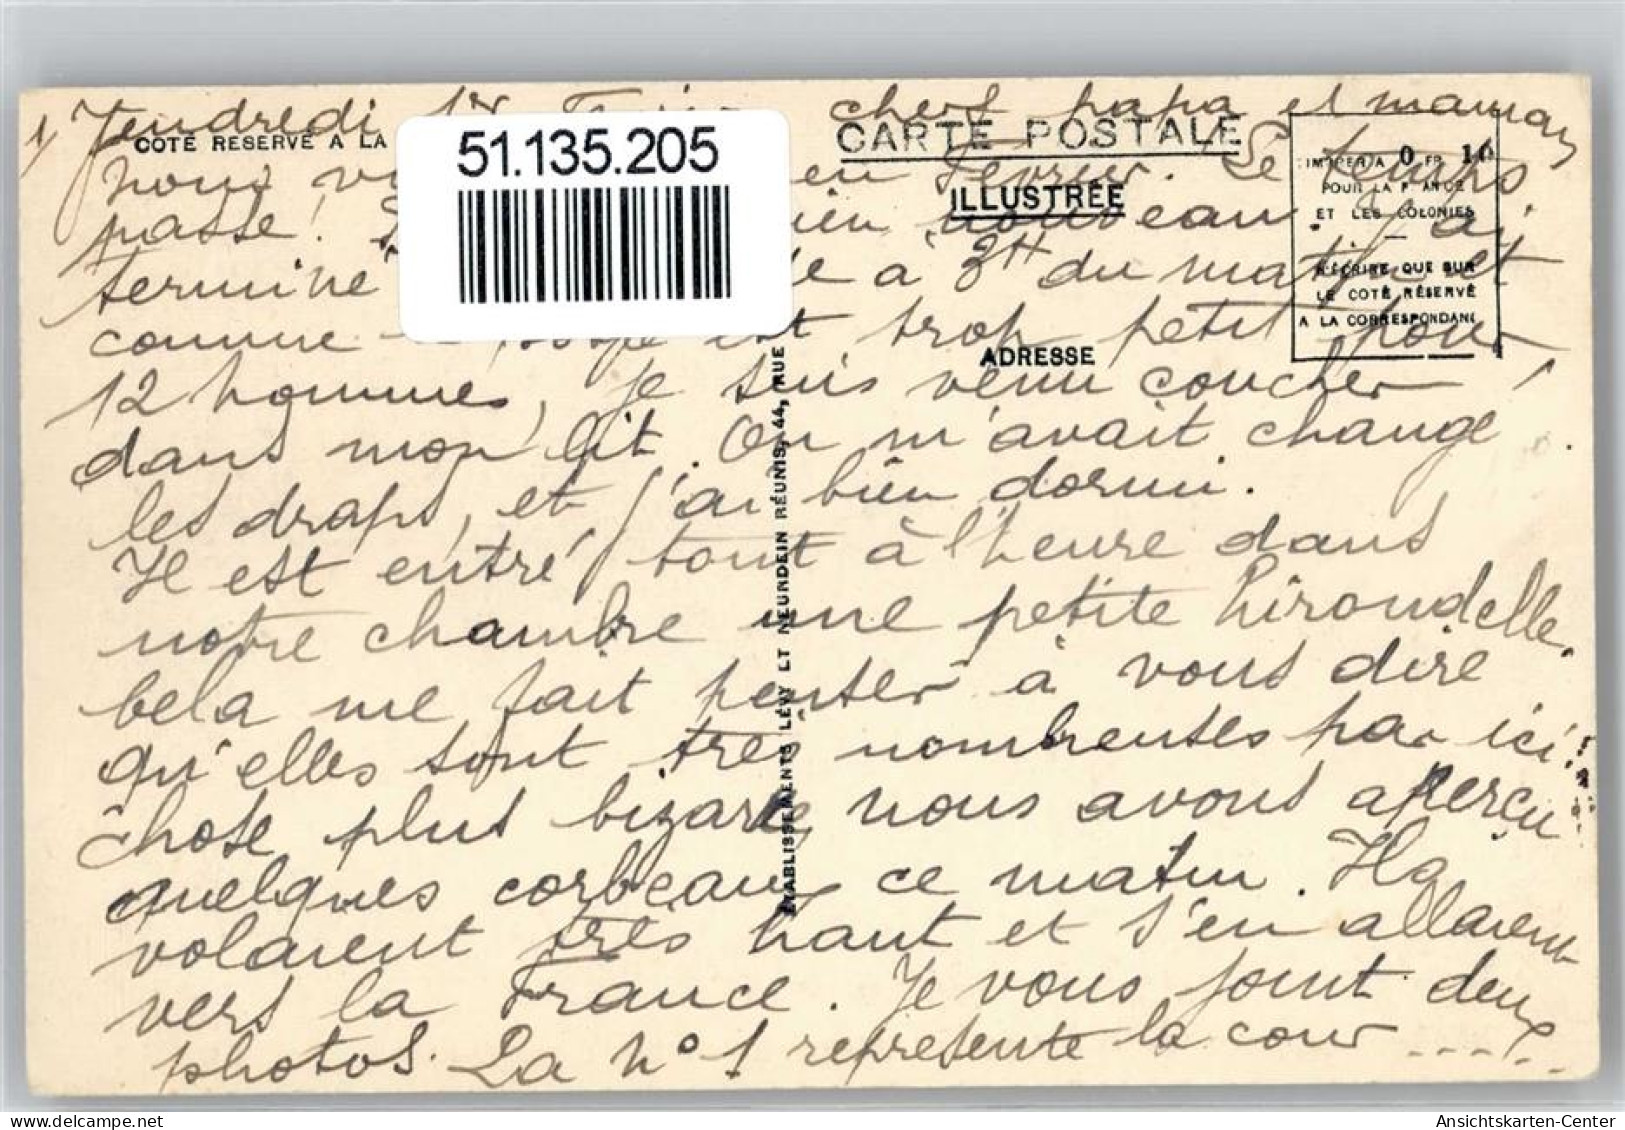 1/ Vendredi 1er chers papa et maman
COTÉ RESERVÉ A LA
51.135.205
CARTE POSTALE
ILLUSTRÉE
IMPRIMÉ A 0 FR 10
POUR LA FRANCE
ET LES COLONIES
N'ECRIRE QUE SUR
LE COTÉ RÉSERVÉ
A LA CORRESPONDANC
ADRESSE
nous en Février. Le temps
passe! bien nouveau. J'ai
terminé à 3H du matin et
comme est trop petit pour
12 hommes, je suis venu coucher
dans mon lit. On m'avait changé
les draps, et j'ai bien dormi.
Il est entré tout à l'heure dans
notre chambre une petite hirondelle.
Cela me fait penser à vous dire
qu'elles sont très nombreuses par ici!
Chose plus bizarre, nous avons aperçu
quelques corbeaux ce matin. Ils
volaient très haut et s'en allaient
vers la France. Je vous joint deux
photos. La n° 1 represente la cour ....
ETABLISSEMENTS LÉVY ET NEURDEIN RÉUNIS, 44, RUE
Ansichtskarten-Center